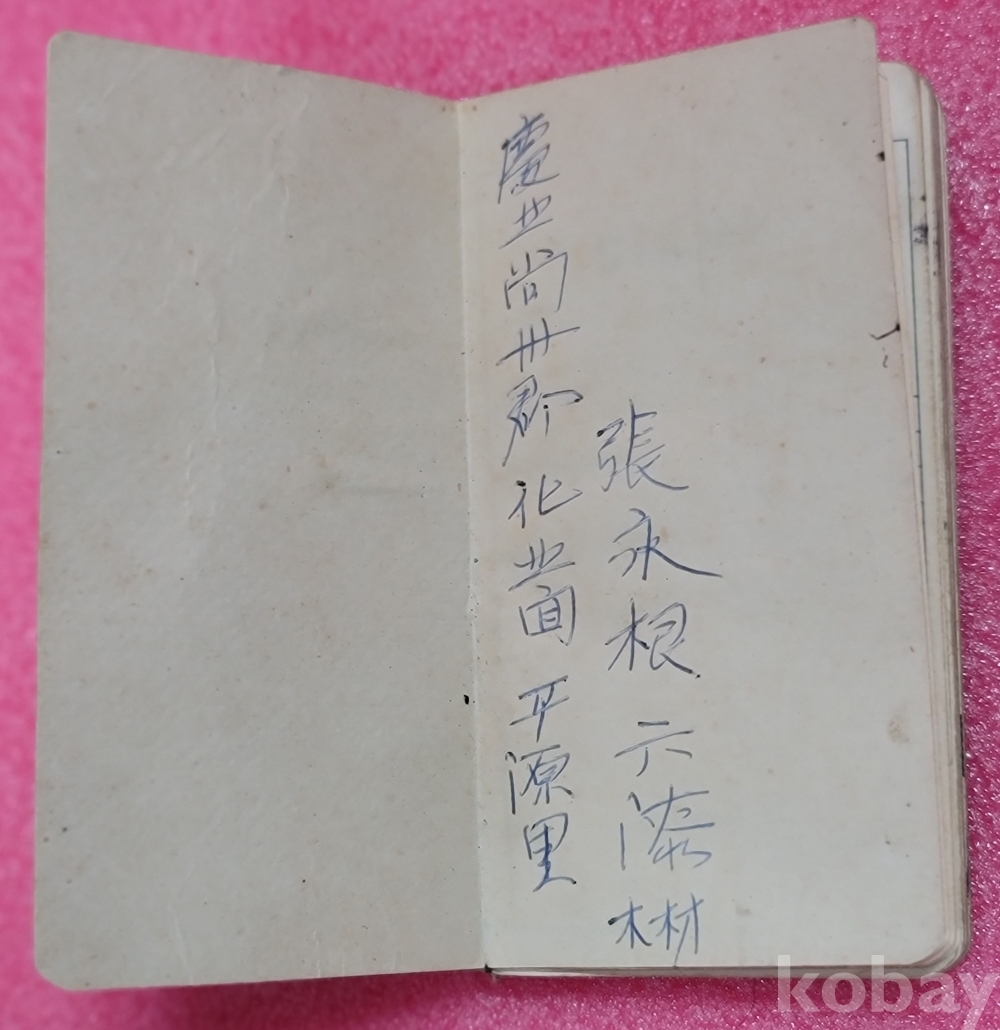 慶北尙州郡 化北面 平源里
張永根 六
kobay